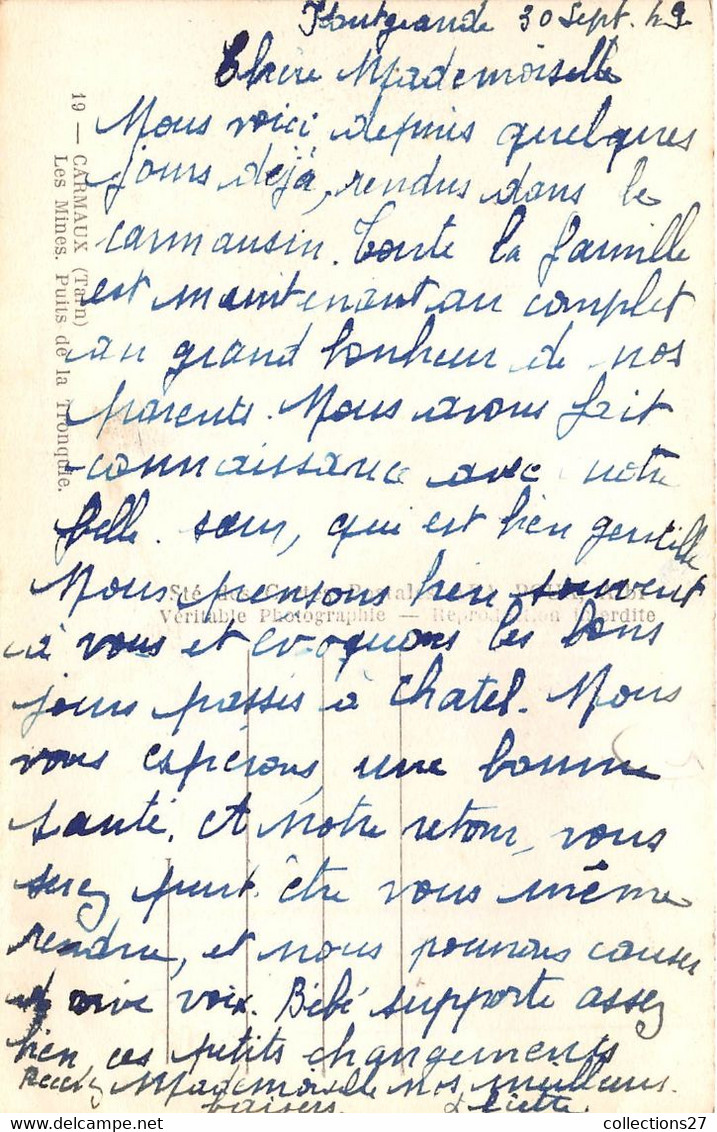 Fontgrande 30 Sept. 49
Chère Mademoiselle
Nous voici depuis quelques
jours déjà, rendus dans le
carmausin. Toute la famille
est maintenant au complet
au grand bonheur de nos
parents. Nous avons fait
connaissance avec notre
belle. sœur, qui est bien gentille
Nous pensons bien souvent
à vous et évoquons les bons
jours passés à Chatel. Nous
vous espérons, une bonne
santé. A notre retour, vous
serez peut. être vous même
rendue, et nous pourrons causer
de vive voix. Bébé supporte assez
bien ces petits changements
Recevez Mademoiselle nos meilleurs.
baisers.
19 — CARMAUX (Tarn)
Les Mines. Puits de la Tronquié.
Sté des Cartes Postales
Véritable Photographie — Reproduction interdite
collections27